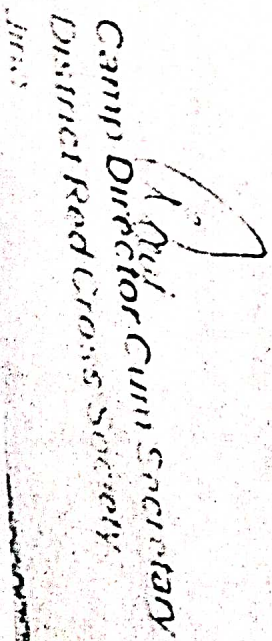 Camp Director Cum Secretary
District Red Cross Society